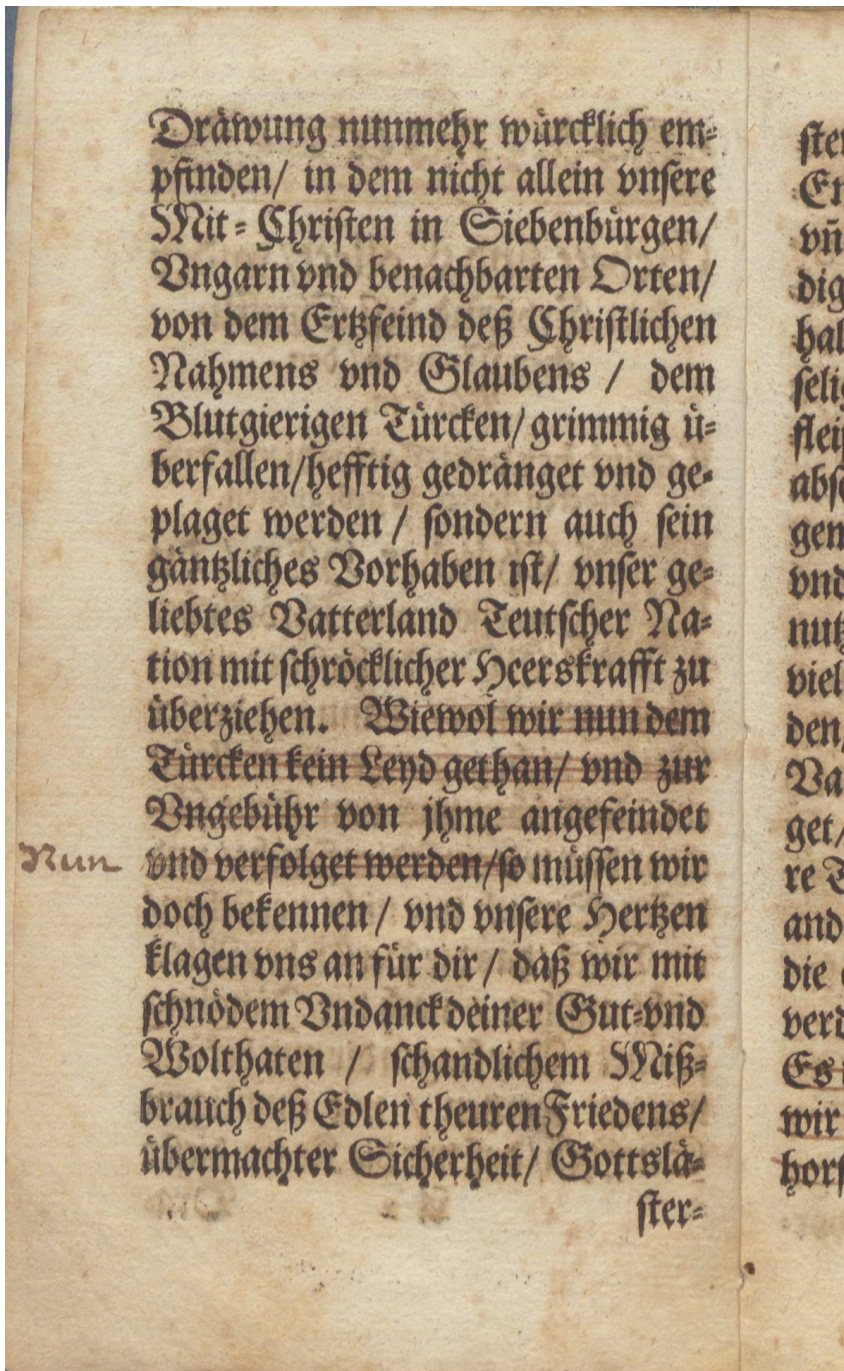 Dräwung nunmehr würcklich em-
pfinden/ in dem nicht allein vnsere
Mit-Christen in Siebenbürgen/
Vngarn vnd benachbarten Orten/
von dem Ertzfeind deß Christlichen
Nahmens vnd Glaubens / dem
Blutgierigen Türcken/ grimmig ü-
berfallen/hefftig gedränget vnd ge-
plaget werden / sondern auch sein
gäntzliches Vorhaben ist/ vnser ge-
liebtes Vatterland Teutscher Na-
tion mit schröcklicher Heerskrafft zu
überziehen. Wiewol wir nun dem
Türcken kein Leyd gethan/ vnd zur
Vngebühr von jhme angefeindet
Nun vnd verfolget werden/so müssen wir
doch bekennen / vnd vnsere Hertzen
klagen vns an für dir / daß wir mit
schnödem Vndanck deiner Gut-vnd
Wolthaten / schandlichem Miß-
brauch deß Edlen theuren Friedens/
übermachter Sicherheit/ Gottslä-
ster-
ster
En
vñ
dig
hal
selig
fleiß
abs
gen
vnd
nutz
viel
den/
Va
get/
re T
and
die
verd
Es
wir
hors